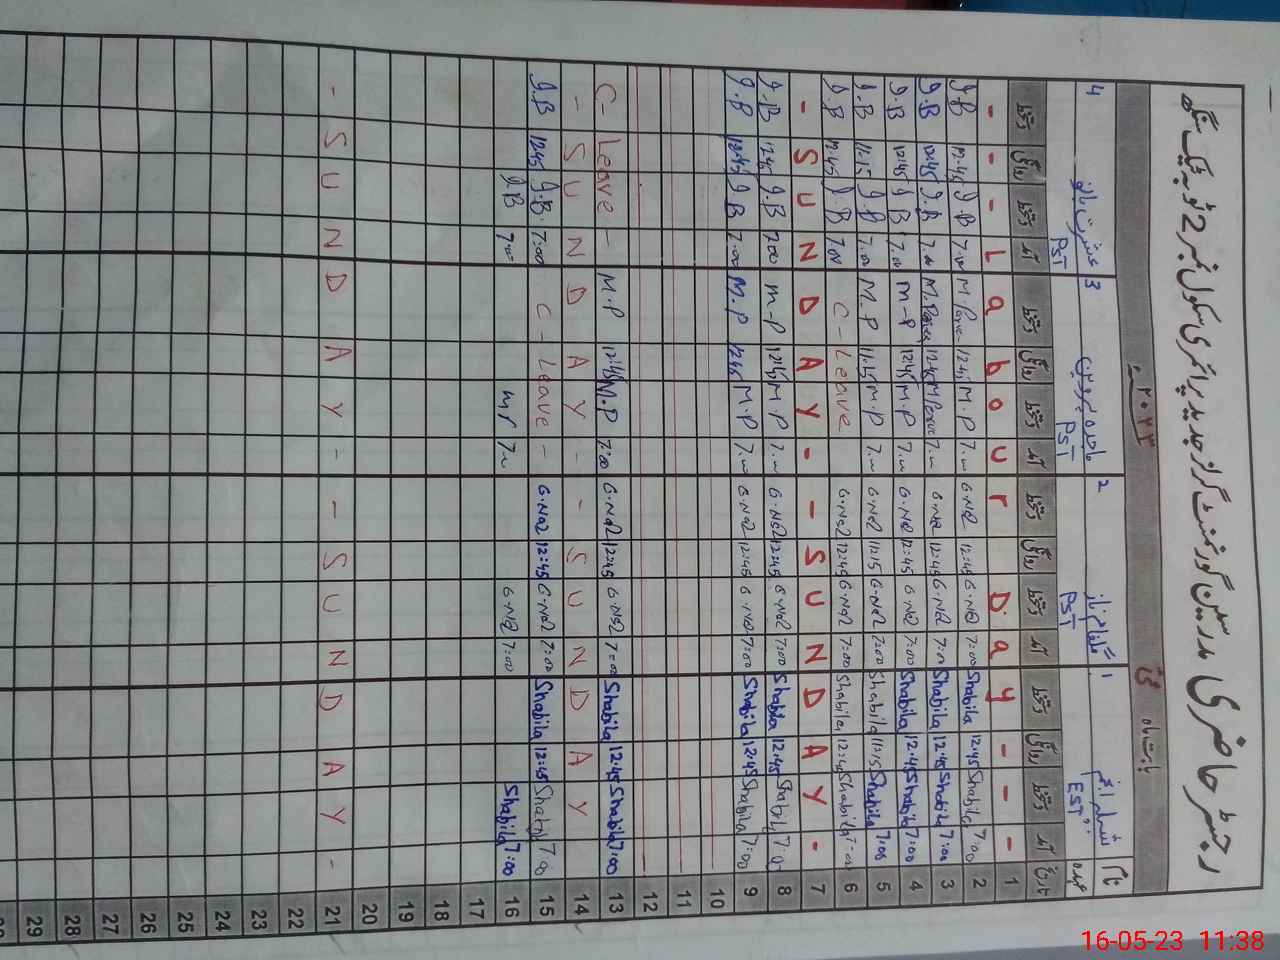 رجسٹر حاضری مدرسین گورنمنٹ گرلز جدید پرائمری سکول نمبر 2 ٹوبہ ٹیک سنگھ
بابت ماہ مئی ۲۰۲۳ء
نام 1 2 گلفام ناز 3 ماجدہ پروین 4 عشرت بانو
عہدہ EST PST PST PST
تاریخ آمد دستخط روانگی دستخط آمد دستخط روانگی دستخط آمد دستخط روانگی دستخط آمد دستخط روانگی دستخط
1 - - - Labour Day - - -
2 7:00 Shabila 12:45 Shabila 7:00 G.Naz 12:45 G.Naz 7:00 M.P 12:45 7:00 I.B 12:45 I.B
3 7:00 Shabila 12:45 Shabila 7:00 G.Naz 12:45 G.Naz 7:00 12:45 7:00 I.B 12:45 I.B
4 7:00 Shabila 12:45 Shabila 7:00 G.Naz 12:45 G.Naz 7:00 M.P 12:45 M-P 7:00 I.B 12:45 I.B
5 7:00 Shabila 11:15 Shabila 7:00 G.Naz 11:15 G.Naz 7:00 M.P 11:15 M.P 7:00 I.B 11:15 I.B
6 7:00 Shabila 12:45 Shabila 7:00 G.Naz 12:45 G.Naz C-Leave 7:00 I.B 12:45 I.B
7 - SUNDAY - - SUNDAY -
8 7:00 Shabila 12:45 Shabila 7:00 G.Naz 12:45 G.Naz 7:00 M.P 12:45 M-P 7:00 I.B 12:45 I.B
9 7:00 Shabila 12:45 Shabila 7:00 G.Naz 12:45 G.Naz 7:00 M.P 12:45 M.P 7:00 I.B 12:45 I.B
10
11
12
13 7:00 Shabila 12:45 Shabila 7:00 G.Naz 12:45 G.Naz 7:00 M.P 12:45 M.P C-Leave -
14 - SUNDAY - - SUNDAY
15 7:00 Shabila 12:45 Shabila 7:00 G.Naz 12:45 G.Naz C-Leave - 7:00 I.B. 12:45 I.B
16 7:00 Shabila 7:00 G.Naz 7:00 MP 7:00 I.B
17
18
19
20
21 - SUNDAY - - SUNDAY -
22
23
24
25
26
27
28
29
16-05-23 11:38